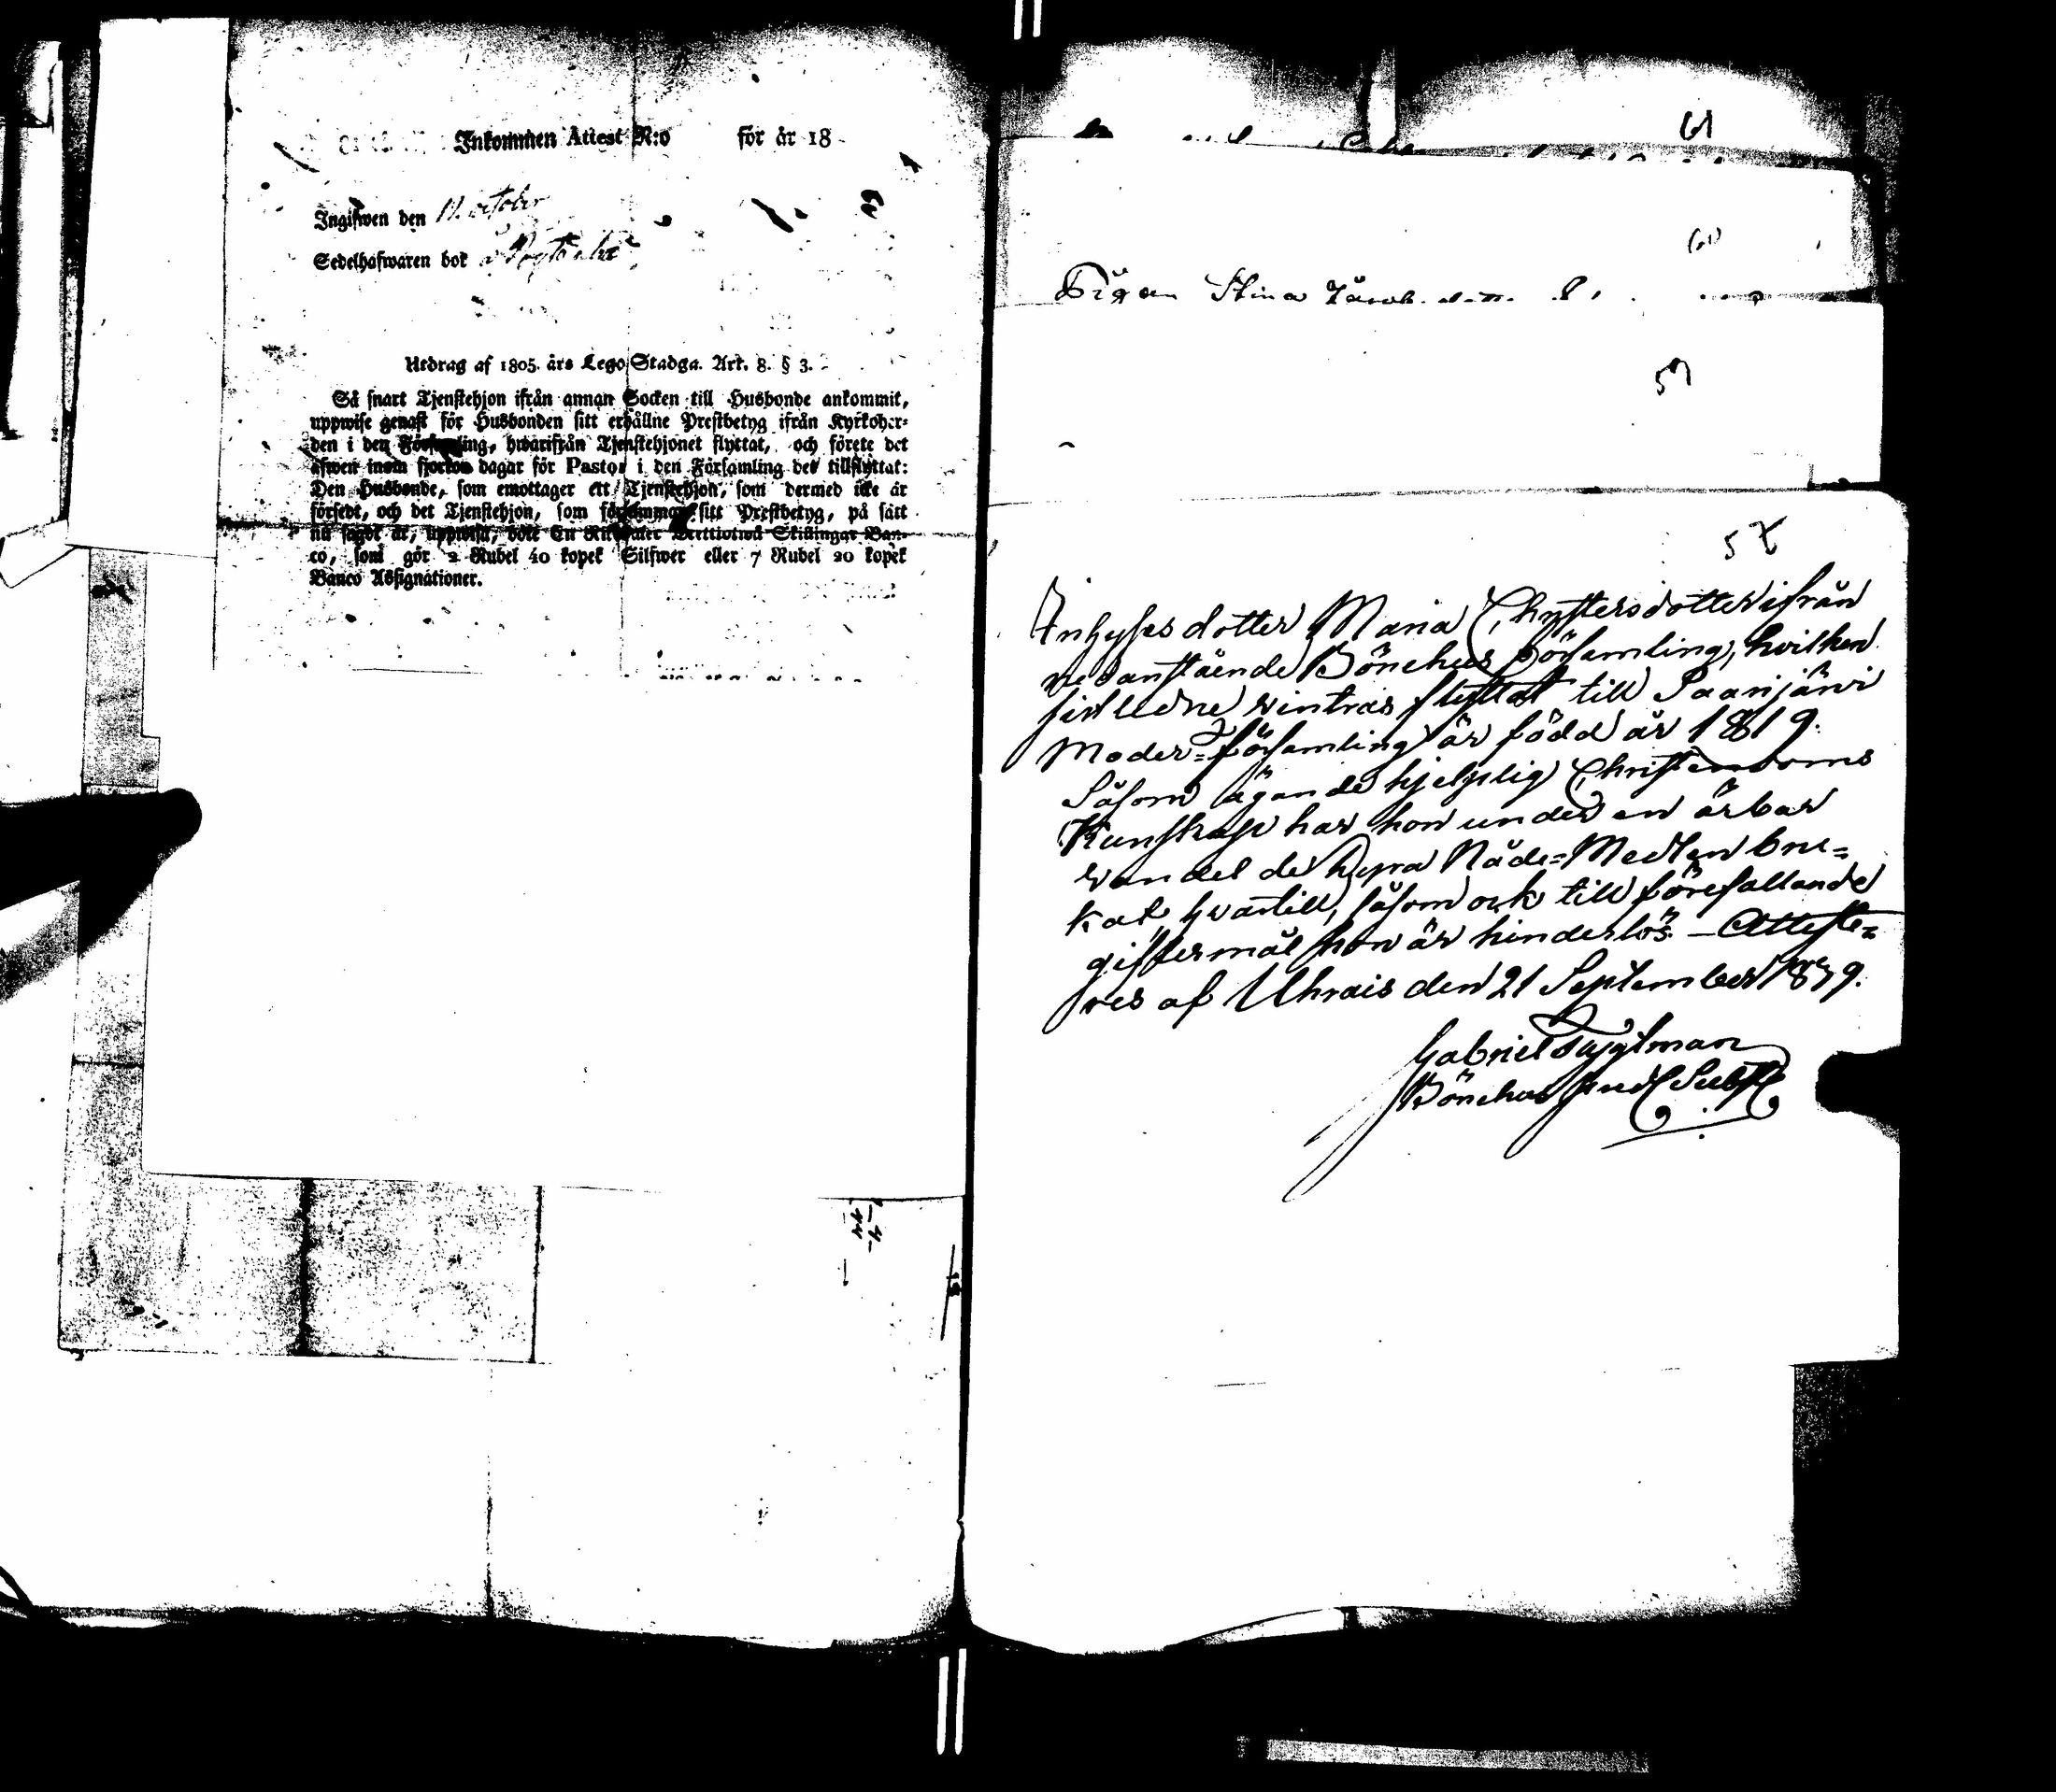 Inkommen Attest N:o för år 18
Ingifwen den 11. october
Sedelhafwaren bor
Utdrag af 1805 års Lego Stadga. Art. 8. § 3.
Så snart Tjenstehjon ifrån annan Socken till Husbonde ankommit,
uppwise genast för Husbonden sitt erhållne Prestbetyg ifrån Kyrkoher-
den i den Församling, hwarifrån Tjenstehjonet flyttat, och förete det
äfwen inom fjorton dagar för Pastor i den Församling det tillflyttat:
Den Husbonde, som emottager ett Tjenstehjon, som dermed icke är
försedt, och det Tjenstehjon, som försummar sitt Prestbetyg, på sätt
nu sagdt är, uppwisa, böte En Riksdaler Trettiotwå Skillingar Ban-
co, som gör 2 Rubel 40 kopek Silfwer eller 7 Rubel 20 kopek
Banco Assignationer.
61
60
Pigan Stina
59
57
Inhyses dotter Maria Chrystersdotter ifrån
nedanstående Bönehus församling, hvilken
sistledne vintras flyttat till Saarijärvi
Moder=församling är född år 1819.
Såsom ägande hjelplig Christendoms
Kunskap har hon under en ärbar
vandel de dyra Nåde=Medlen bru=
kat, hvartill, såsom ock till förefallande
giftermål hon är hinderlös – Atteste=
res af Uhrais den 21 September 1839.
Gabriel
Bönehus